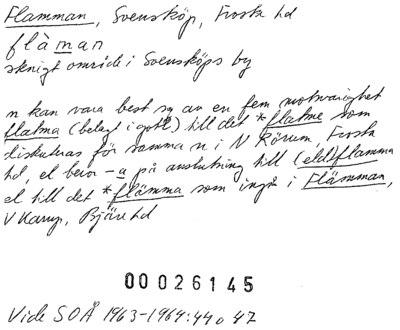 Flamman, Svensköp, Frosta hd
flàman
sknigt område i Svensköps by
n kan vara best sg av en fem motsvarighet
flatma (belagt i gotl) till det *flatme som
diskuteras för samma n i N Rörum, Frosta
hd, el beror -a på anslutning till (eld)flamma
el till det *flämma som ingår i Flämman,
V Karup, Bjäre hd
00026145
Vide SOÅ 1963-1964:44 o 47